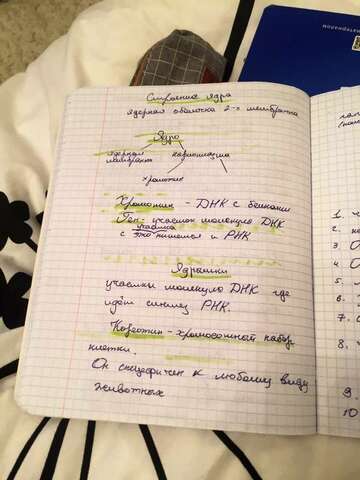 Строение ядра
ядерная оболочка 2-х мембрана
Ядро
ядерная мембрана
кариоплазма
хроматин
Хроматин - ДНК с белками
Ген - участок молекулы ДНК
участка
с этого и РНК
Ядрышки
участки молекулы ДНК где
идёт синтез РНК.
Кариотип - хромосомный набор
клетки.
Он специфичен к любому виду
животных
1.
2.
3.
4.
5.
6.
7.
8.
9.
10